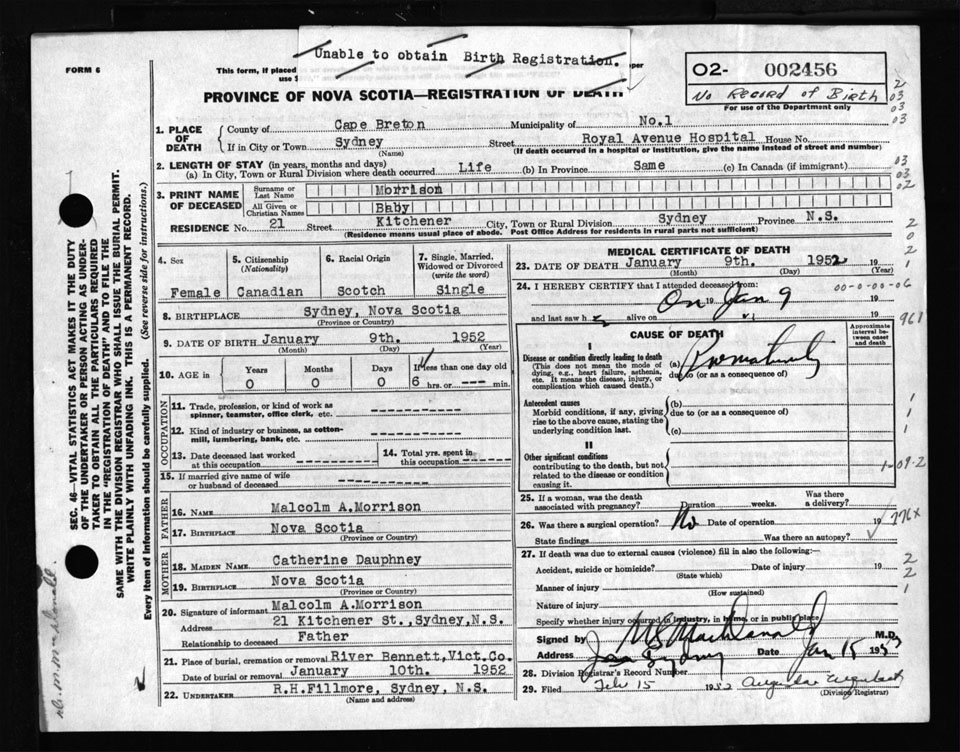 Unable to obtain Birth Registration.
FORM 6
This form, if placed
use $
per
02- 002456
No Record of Birth
For use of the Department only
PROVINCE OF NOVA SCOTIA—REGISTRATION OF DEATH
1. PLACE OF DEATH County of Cape Breton Municipality of No.1
If in City or Town Sydney Street Royal Avenue Hospital House No.
(Name) (If death occurred in a hospital or institution, give the name instead of street and number)
2. LENGTH OF STAY (in years, months and days)
(a) In City, Town or Rural Division where death occurred Life (b) In Province Same (c) In Canada (if immigrant)
3. PRINT NAME OF DECEASED Surname or Last Name Morrison
All Given or Christian Names Baby
RESIDENCE No. 21 Street Kitchener City, Town or Rural Division Sydney Province N.S.
(Residence means usual place of abode. Post Office Address for residents in rural parts not sufficient)
4. Sex Female
5. Citizenship (Nationality) Canadian
6. Racial Origin Scotch
7. Single, Married, Widowed or Divorced (write the word) Single
8. BIRTHPLACE Sydney, Nova Scotia
(Province or Country)
9. DATE OF BIRTH January 9th. 1952
(Month) (Day) (Year)
10. AGE in Years Months Days If less than one day old
0 0 0 6 hrs. or --- min.
OCCUPATION
11. Trade, profession, or kind of work as spinner, teamster, office clerk, etc.
12. Kind of industry or business, as cotton-mill, lumbering, bank, etc.
13. Date deceased last worked at this occupation
14. Total yrs. spent in this occupation
15. If married give name of wife or husband of deceased
FATHER
16. NAME Malcolm A.Morrison
17. BIRTHPLACE Nova Scotia
(Province or Country)
MOTHER
18. MAIDEN NAME Catherine Dauphney
19. BIRTHPLACE Nova Scotia
(Province or Country)
20. Signature of informant Malcolm A.Morrison
Address 21 Kitchener St.,Sydney,N.S.
Relationship to deceased Father
21. Place of burial, cremation or removal River Bennett,Vict.Co.
Date of burial or removal January 10th. 1952
22. UNDERTAKER R.H.Fillmore, Sydney, N.S.
(Name and address)
MEDICAL CERTIFICATE OF DEATH
23. DATE OF DEATH January 9th. 1952 19
(Month) (Day) (Year)
24. I HEREBY CERTIFY that I attended deceased from:
On 19 Jan 9 00-0-00-06 19
and last saw h alive on 19 961
CAUSE OF DEATH
Approximate interval between onset and death
I
Disease or condition directly leading to death
(This does not mean the mode of dying, e.g., heart failure, asthenia, etc. It means the disease, injury, or complication which caused death.)
(a) Prematurity
due to (or as a consequence of)
Antecedent causes
Morbid conditions, if any, giving rise to the above cause, stating the underlying condition last.
(b)
due to (or as a consequence of)
(c)
II
Other significant conditions
contributing to the death, but not related to the disease or condition causing it.
1-09-2
25. If a woman, was the death associated with pregnancy? Duration weeks. Was there a delivery?
26. Was there a surgical operation? No Date of operation 19 776x
State findings Was there an autopsy?
27. If death was due to external causes (violence) fill in also the following:—
Accident, suicide or homicide? Date of injury 19
(State which)
Manner of injury
(How sustained)
Nature of injury
Specify whether injury occurred in industry, in home, or in public place
Signed by MacDonald M.D.
Address Sydney Date Jan 15 195
28. Division Registrar's Record Number
29. Filed Feb 15 1952
(Division Registrar)
SEC. 46—VITAL STATISTICS ACT MAKES IT THE DUTY
OF THE UNDERTAKER OR PERSON ACTING AS UNDER-
TAKER TO OBTAIN ALL THE PARTICULARS REQUIRED
IN THE "REGISTRATION OF DEATH" AND TO FILE THE
SAME WITH THE DIVISION REGISTRAR WHO SHALL ISSUE THE BURIAL PERMIT.
WRITE PLAINLY WITH UNFADING INK. THIS IS A PERMANENT RECORD.
Every item of information should be carefully supplied. (See reverse side for instructions.)
2
03
03
03
03
03
02
2
0
2
1
1
1
1
2
2
1